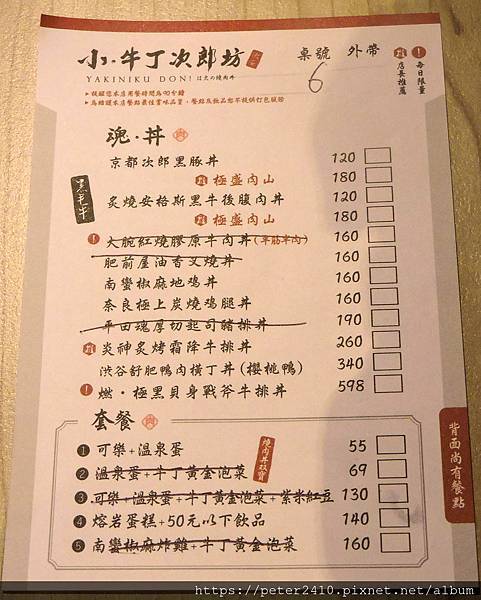 小・牛丁次郎坊
YAKINIKU DON! は丈の燒肉丼
桌號 外帶
6
店長推薦
每日限量
▸提醒您本店用餐時間為90分鐘
魂・丼
京都次郎黑豚丼 120
極盛肉山 180
炙燒安格斯黑牛後腹肉丼 120
極盛肉山 180
! 大腕紅燒膠原牛肉丼(半筋半肉) 160
肥前屋油香叉燒丼 160
南蠻椒麻地鴿丼 160
奈良極上炭燒鴿腿丼 160
平田魂厚切起司豬排丼 190
炎神炙烤霜降牛排丼 260
渋谷舒肥鴨肉橫丁丼(櫻桃鴨) 340
! 燃・極黑貝身戰斧牛排丼 598
套餐
燒肉丼双寶
1 可樂+溫泉蛋 55
2 溫泉蛋+牛丁黃金泡菜 69
3 可樂+溫泉蛋+牛丁黃金泡菜+紫米紅豆 130
4 熔岩蛋糕+50元以下飲品 140
5 南蠻椒麻炸雞+牛丁黃金泡菜 160
背面尚有餐點
https://peter2410.pixnet.net/album